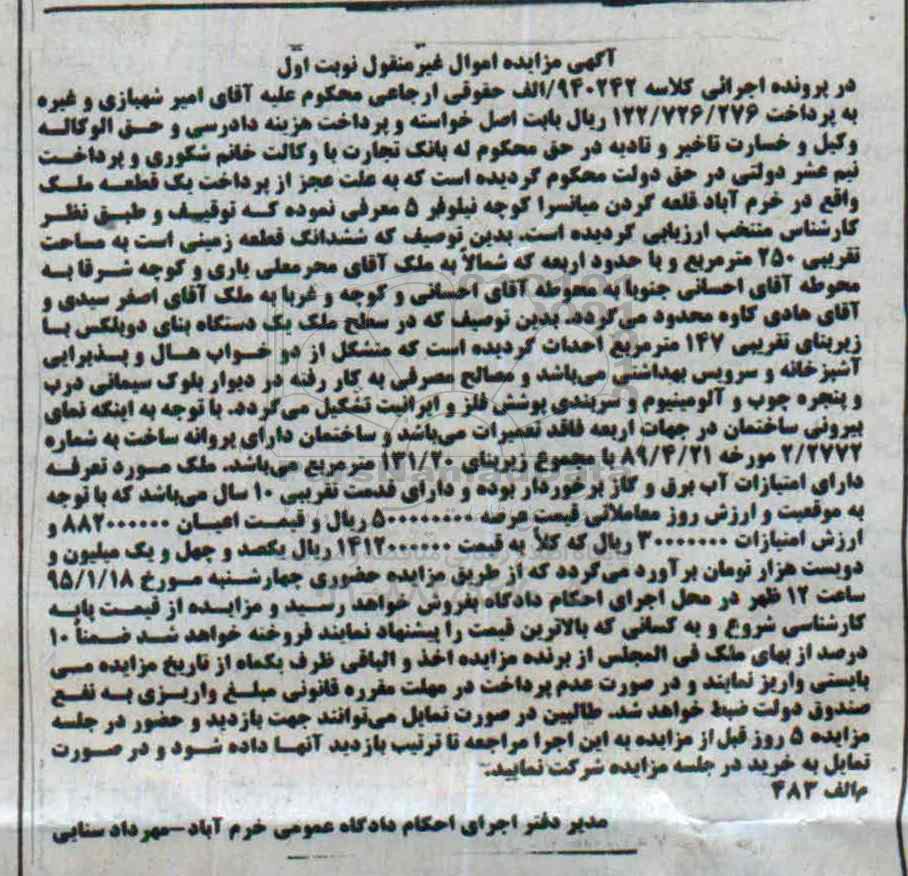 آگهی مزایده اموال غیرمنقول نوبت اول
در پرونده اجرائی کلاسه ۹۴۰۲۴۲/الف حقوقی ارجاعی محکوم علیه آقای امیر شهبازی و غیره
به پرداخت ۱۲۲/۷۲۶/۲۷۶ ریال بابت اصل خواسته و پرداخت هزینه دادرسی و حــق الوکالــه
وکیل و خسارت تاخیر و تادیه در حق محکوم له بانک تجارت با وکالت خانم شکوری و پرداخــت
نیم عشر دولتی در حق دولت محکوم گردیده است که به علت عجز از پرداخت یک قطعــه ملــک
واقع در خرم آباد قلعه گردن میانسرا کوچه نیلوفر ۵ معرفی نموده کــه توقیــف و طبــق نظــر
کارشناس منتخب ارزیابی گردیده است. بدین توصیف که ششدانگ قطعه زمینی است به مساحت
تقریبی ۲۵۰ مترمربع و با حدود اربعه که شمالاً به ملک آقای محرمعلی یاری و کوچه شــرقا بــه
محوطه آقای احسانی جنوبا به محوطه آقای احسانی و کوچه و غربا به ملک آقای اصغر سیدی و
آقای هادی کاوه محدود می‌گردد. بدین توصیف که در سطح ملک یک دستگاه بنای دوبلکس بــا
زیربنای تقریبی ۱۴۷ مترمربع احداث گردیده است که متشکل از دو خــواب هــال و پــذیرایی
آشپزخانه و سرویس بهداشتی می‌باشد و مصالح مصرفی به کار رفته در دیوار بلوک سیمانی درب
و پنجره چوب و آلومینیوم و سربندی پوشش فلز و ایرانیت تشکیل می‌گردد. با توجه به اینکه نمای
بیرونی ساختمان در جهات اربعه فاقد تعمیرات می‌باشد و ساختمان دارای پروانه ساخت به شماره
۲/۲۷۷۲ مورخه ۸۹/۴/۲۱ با مجموع زیربنای ۱۳۱/۲۰ مترمربع می‌باشد. ملک مــورد تعرفــه
دارای امتیازات آب برق و گاز برخوردار بوده و دارای قدمت تقریبی ۱۰ سال می‌باشد که با توجه
به موقعیت و ارزش روز معاملاتی قیمت عرصه ۵۰۰۰۰۰۰۰۰ ریال و قیمــت اعیــان ۸۸۲۰۰۰۰۰۰ و
ارزش امتیازات ۳۰۰۰۰۰۰۰ ریال که کلاً به قیمت ۱۴۱۲۰۰۰۰۰۰ ریال یکصد و چهل و یک میلیون و
دویست هزار تومان برآورد می‌گردد که از طریق مزایده حضوری چهارشــنبه مــورخ ۹۵/۱/۱۸
ساعت ۱۲ ظهر در محل اجرای احکام دادگاه بفروش خواهد رسید و مزایــده از قیمــت پایــه
کارشناسی شروع و به کسانی که بالاترین قیمت را پیشنهاد نمایند فروخته خواهد شــد ضــمناً ۱۰
درصد از بهای ملک فی المجلس از برنده مزایده اخذ و الباقی ظرف یکماه از تاریخ مزایده مــی
بایستی واریز نمایند و در صورت عدم پرداخت در مهلت مقرره قانونی مبلــغ واریــزی بــه نفــع
صندوق دولت ضبط خواهد شد. طالبین در صورت تمایل می‌توانند جهت بازدید و حضور در جلسه
مزایده ۵ روز قبل از مزایده به این اجرا مراجعه تا ترتیب بازدید آنهــا داده شــود و در صــورت
تمایل به خرید در جلسه مزایده شرکت نمایید.
م‌الف ۴۸۳
مدیر دفتر اجرای احکام دادگاه عمومی خرم آباد–مهرداد سنایی